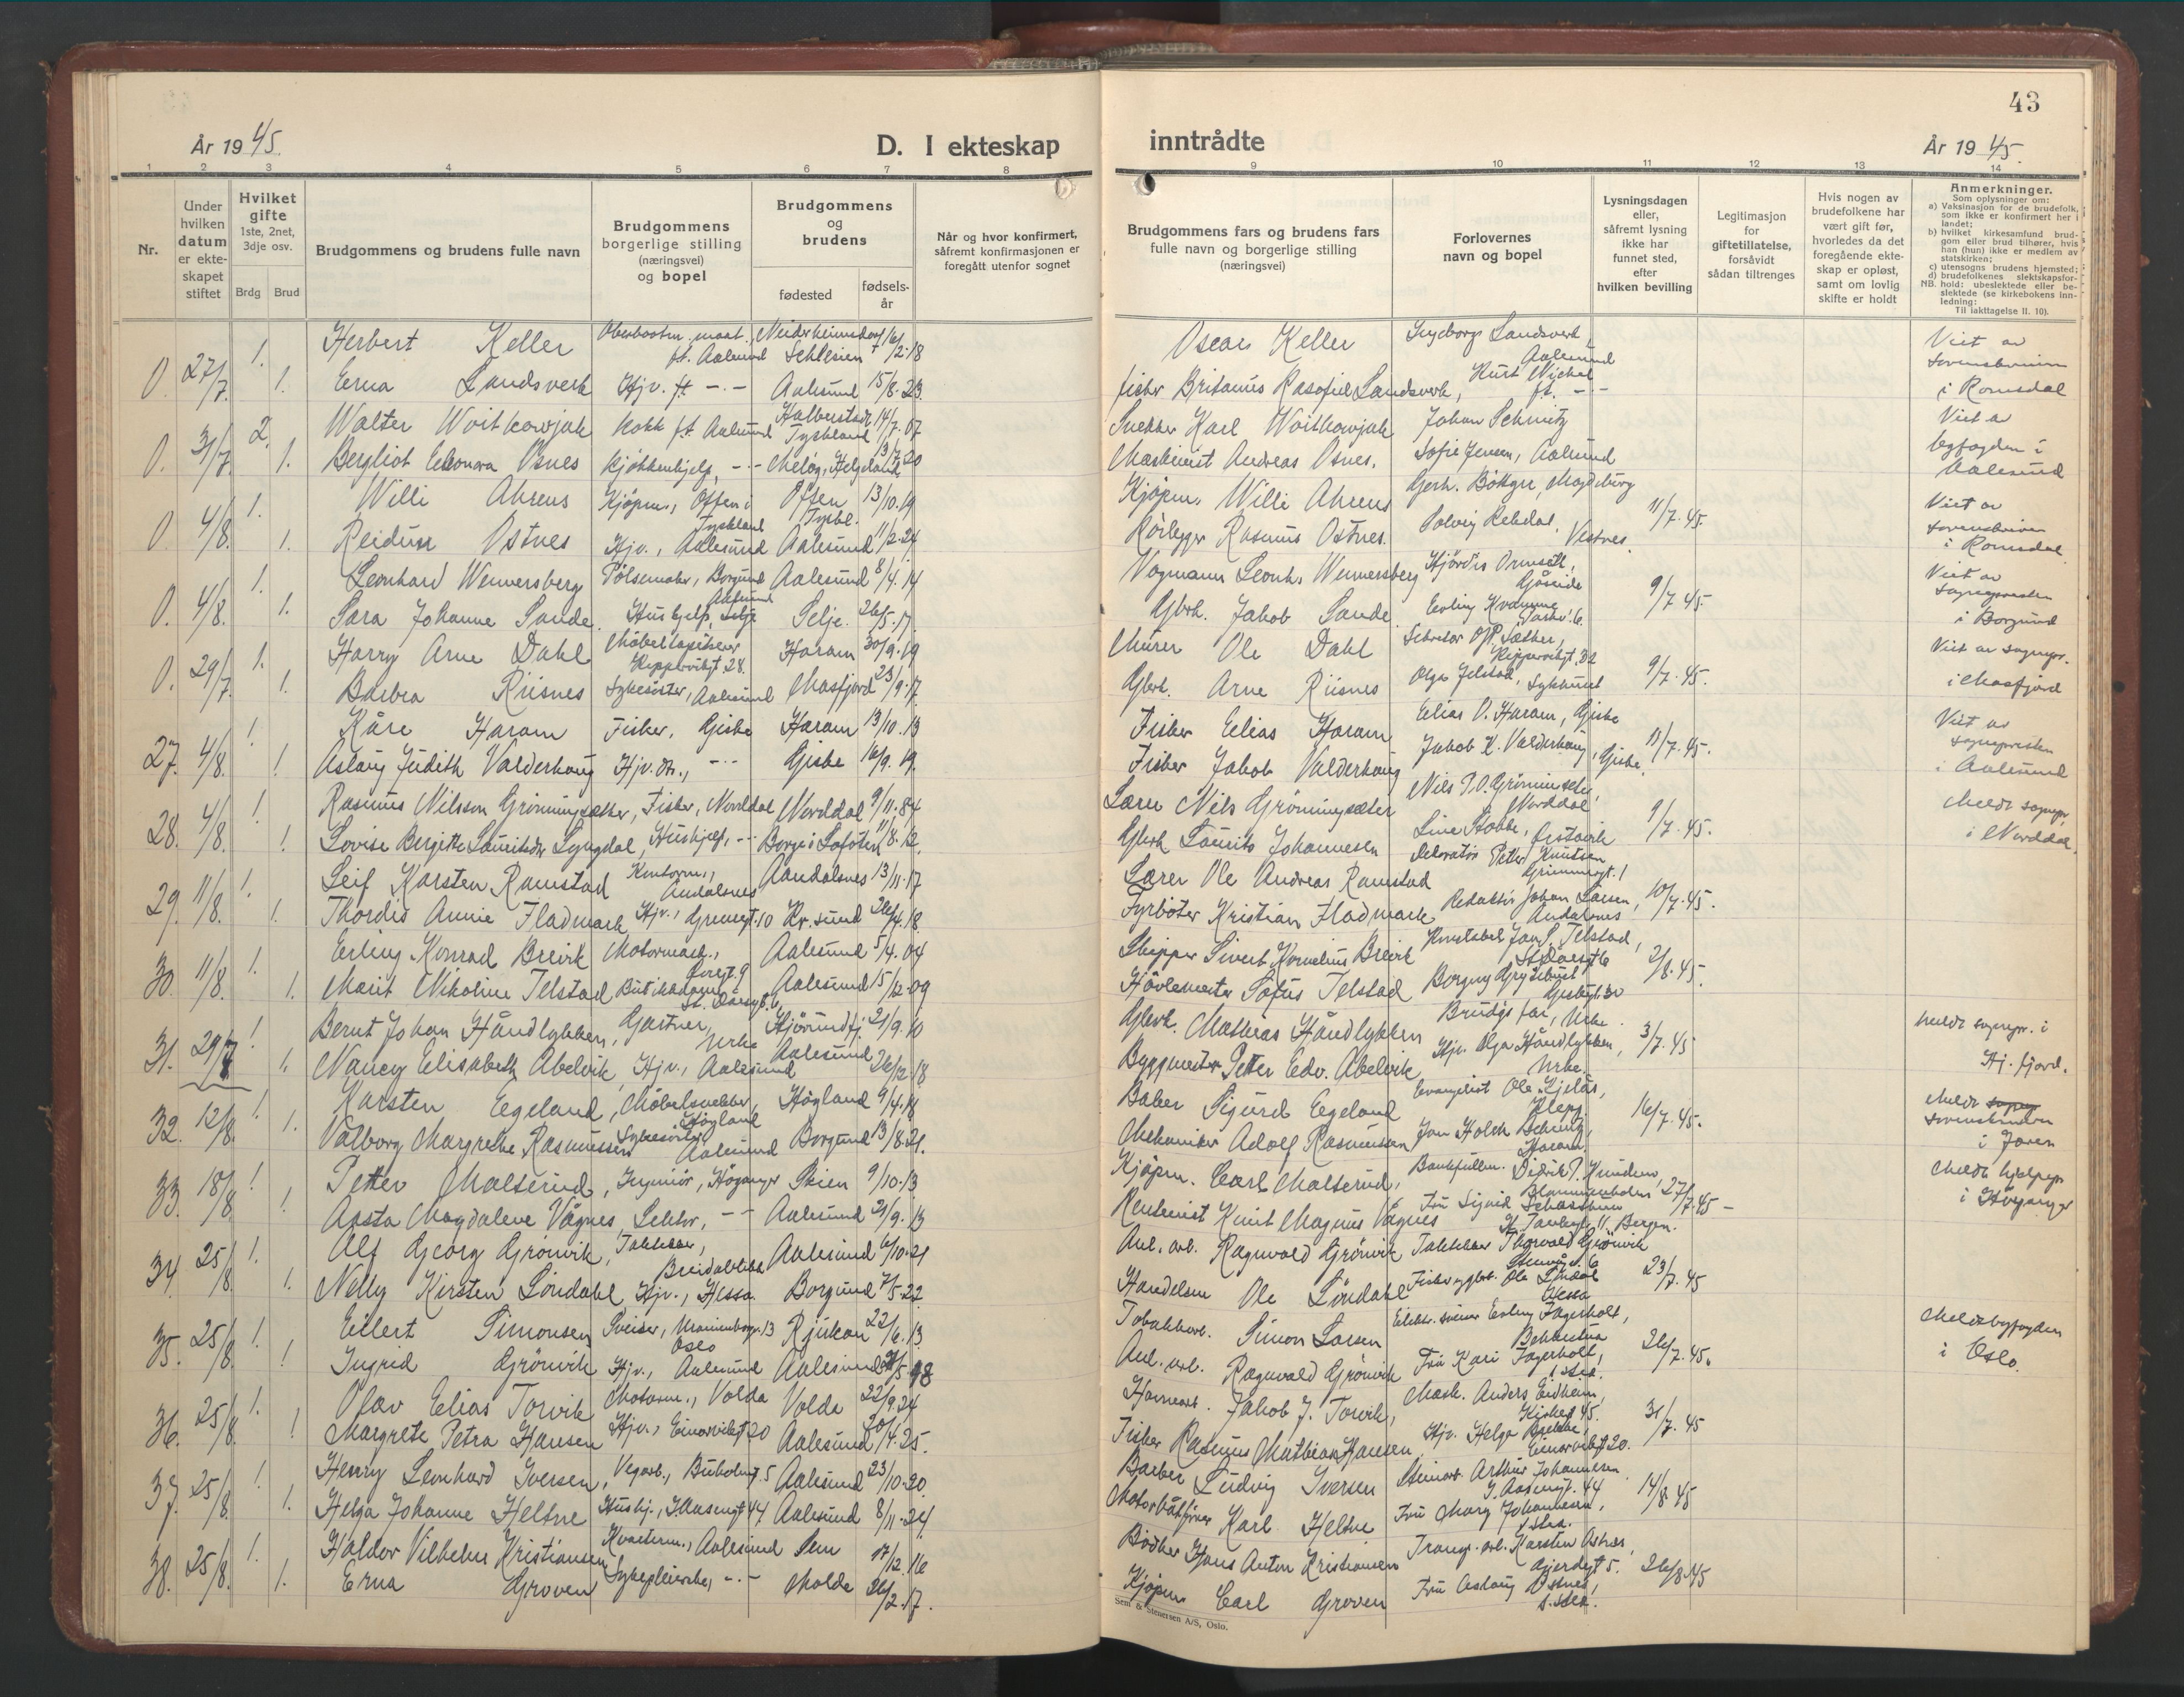 43
År 1945.
D. I ekteskap
inntrådte
År 1945.
1 2 3 4 5 6 7 8 9 10 11 12 13 14
Nr.
Under hvilken datum er ekteskapet stiftet
Hvilket gifte 1ste, 2net, 3dje osv.
Brdg Brud
Brudgommens og brudens fulle navn
Brudgommens borgerlige stilling (næringsvei) og bopel
Brudgommens og brudens
fødested
fødselsår
Når og hvor konfirmert, såfremt konfirmasjonen er foregått utenfor sognet
Brudgommens fars og brudens fars fulle navn og borgerlige stilling (næringsvei)
Forlovernes navn og bopel
Lysningsdagen eller, såfremt lysning ikke har funnet sted, efter hvilken bevilling
Legitimasjon for giftetillatelse, forsåvidt sådan tiltrenges
Hvis nogen av brudefolkene har vært gift før, hvorledes da det foregående ekteskap er opløst, samt om lovlig skifte er holdt
Anmerkninger.
Som oplysninger om:
a) Vaksinasjon for de brudefolk, som ikke er konfirmert her i landet;
b) hvilket kirkesamfund brudgom eller brud tilhører, hvis han (hun) ikke er medlem av statskirken;
c) utensogns brudens hjemsted;
d) brudefolkenes slektskapsforhold: ubeslektede eller beslektede (se kirkebokens innledning:
NB.
Til iakttagelse II. 10).
0. 27/7. 1. Herbert Keller ft. Aalesund Schlesien 16/2.18 Oscar Keller Ingeborg Landsverk, Aalesund Viet av sorenskriveren i Romsdal
1. Erna Landsverk Hjv. ft -.- Aalesund 15/8.23. fisker Landsverk, Kurt ft. -.-
0. 31/7. 2. Walter Woitkowjak Kokk ft. Aalesund Halberstadt Tyskland 14/7.07 Snekker Karl Woitkowjak Johan Schmitz Viet av byfogden i Aalesund
1. Bergliot Eleonora Osnes Kjøkkenhjelp, -.- Meløy, Helgeland 13/7.20 Maskinist Andreas Osnes. Sofie Jensen, Aalesund
0. 4/8. 1. Willi Ahrens Kjøpm., Tyskland Tyskl. 13/10.19 Kjøpm. Willi Ahrens Gerh. Magdeburg 11/7.45. Viet av sorenskriver i Romsdal
1. Reidun Ostnes Hjv., Aalesund Aalesund 11/2.24 Rørlegger Rasmus Ostnes. Solveig Rekdal, Vestnes.
0. 4/8. 1. Leonhard Wennersberg Pølsemaker, Borgund Aalesund 8/4.14 Vognmann Leonh. Wennersberg Hjørdis Ormseth, 9/7.45. Viet av sognepresten i Borgund
1. Sara Johanne Sande. Hushjelp, Selje Selje. 26/5.17 Gbrk. Jakob Sande Erling
0. 29/7. 1. Harry Arne Dahl Møbeltapetserer Kippervikgt 28. Haram 30/9.19 Murer Ole Dahl Sekretær O.P. Sæther, Kippervikgt. 32 9/7.45. Viet av sognepr. i Masfjord
1. Barbra Riisnes Sykesøster, Aalesund Masfjord 23/9.17 Gbrk. Arne Riisnes Olga Jelstad, Sykehuset
27. 4/8. 1. Kåre Haram Fisker, Giske Haram 13/10.13 Fisker Elias Haram Elias O. Haram, Giske 11/7.45. Viet av sognepresten i Aalesund
1. Aslaug Judith Valderhaug Hjv. dtr., -.- Giske 16/9.19. Fisker Jakob Valderhaug Jakob K. Valderhaug, Giske.
28. 4/8. 1. Rasmus Nilsson Grønningsæter, Fisker, Norddal Norddal 9/11.84 Lærer Nils Grønningsæter Nils P.O. Grønningsæter, Norddal 9/7.45. Meldt sognepr. i Norddal.
1. Lovise Bergitte Lauritsdtr Lyngdal, Hushjelp, -.- Borge i Lofoten 11/8.12. Gbrk Laurits Johannesen Line
29. 11/8. 1. Leif Karsten Ramstad Kontorm., Andalsnes Aandalsnes 13/11.17 Lærer Ole Andreas Ramstad Dekoratør Petter Knutsen 10/7.45.
1. Thordis Annie Fladmark Hjv., 10 Kr. sund 26/4.18. Fyrbøter Kristian Fladmark Redaktør Johan Larsen, Andalsnes
30. 11/8. 1. Erling Konrad Breivik Motormask., Aalesund 5/4.04 Skipper Sivert Kornelius Breivik Konstabel Jon S. Telstad, St. Olavsgt 6 2/8.45.
1. Marit Nikoline Telstad St. Olavsgt. 6, Aalesund 15/12.09 Høvlemester Sofus Telstad Borgny
31. 29/7 1. Bernt Johan Håndlykken, Gartner, Urke Hjørundfj. 21/9.10 Gbrk. Mathias Håndlykken Brudgs far, Urke. 3/7.45 Meldt sognepr. i Hj. fjord.
1. Nancy Elisabeth Abelvik, Hjv., Aalesund Aalesund 26/12.18 Byggmester Petter Edv. Abelvik Hjv. Olga Håndlykken, Urke.
32. 12/8. 1. Karsten Eegeland, Møbelsnekker, Høgland Høgland 9/4.18 Baker Sigurd Eegeland Evangelist Ole 16/7.45. Meldt sorenskriveren i Jæren
1. Valborg Margrethe Rasmussen Sykesøster Aalesund Borgund 13/8.21. Mekaniker Adolf Rasmussen Jon Holck Haram.
33. 18/8. 1. Petter Malterud, Ingeniør, Høyanger Skien 9/10.13 Kjøpm. Carl Malterud, Bankfullm. Didrik T. 27/7.45 - Meldt hjelpepr. i Høyanger
1. Aasta Magdalene Vågnes, Lektor, -- Aalesund 21/9.13 Rentenist Knut Magnus Vågnes Fru Sigrid Bergen.
34. 25/8 1. Alf Georg Grønvik, Taktekker, Breidablikk Aalesund 6/10.21 Anl. arb. Ragnvald Grønvik Taktekker Thorvald Grønvik 23/7.45
1. Nelly Kirsten Løndahl Hjv., Hessa. Borgund 7/5.22 Handelsm Ole Løndahl Fisker Ole Løndal Hessa
35. 25/8. 1. Eilert Simonsen Sveiser, 13 Oslo Rjukan 22/6.13 Tobakkarb. Simon Larsen Elektr. Erling Fagerholt, 26/7.45. Meldt byfogden i Oslo.
1 Ingrid Grønvik Hjv., Aalesund Aalesund 18 Anl. arb. Ragnvald Grønvik Fru Kari Fagerholt, s.sted.
36. 25/8. 1. Olav Elias Torvik Motorm., Volda Volda 22/9.24 Havnearb. Jakob J. Torvik, Mask. Anders Eidheim, 45. 31/7.45
1 Margrete Petra Hansen Hjv., Einarvikgt 20 Aalesund 20/4.25. Fisker Rasmus Mathias Hansen Hjv. Helga Einarvikgt 20.
37. 25/8. 1. Henry Leonhard Iversen, Vegarb., Buholmgt. 5 Aalesund 23/10.20. Barber Ludvig Iversen Arthur Johannesen I. Aasensgt. 44 14/8.45
1. Helga Johanne Heltne Hushj., I. Aasensgt 44 Aalesund 8/11.24. Motorbåtfører Karl Heltne Fru Marg Johannesen, s.sted.
38. 25/8. 1. Haldor Vilhelm Kristiansen Kvarterm., Aalesund Sem 17/12.16 Bødker Hans Anton Kristiansen Transp. arb. Karsten Astnes, 5. 26/8.45
1. Erna Groven Sykepleierske, -.- Molde 26/2.17. Kjøpm Carl Groven Fru Aslaug s.sted.
Sem & Stenersen A/S, Oslo.